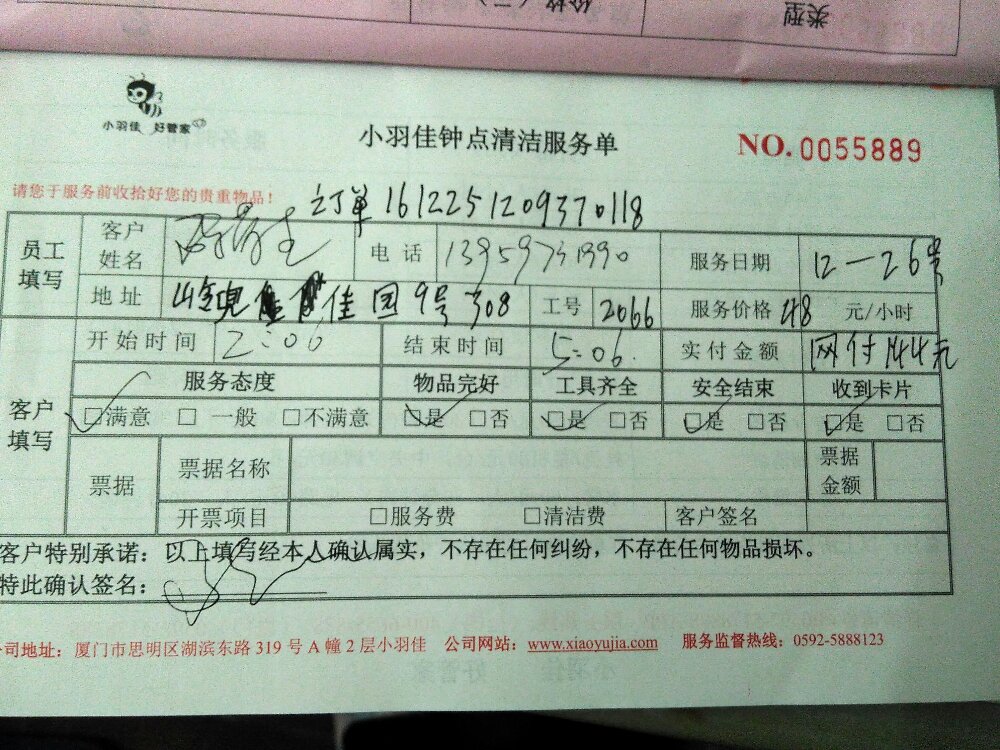 类型
小羽佳 好管家
小羽佳钟点清洁服务单
NO.0055889
请您于服务前收拾好您的贵重物品！
订单1612251209370118
员工填写 客户姓名 电话 服务日期 12-26号
地址 佳园9号308 工号 2066 服务价格 48 元/小时
开始时间 2:06 结束时间 5:06. 实付金额 网付144元
客户填写 服务态度 物品完好 工具齐全 安全结束 收到卡片
☑满意 □一般 □不满意 ☑是 □否 ☑是 □否 ☑是 □否 ☑是 □否
票据 票据名称 票据金额
开票项目 □服务费 □清洁费 客户签名
客户特别承诺：以上填写经本人确认属实，不存在任何纠纷，不存在任何物品损坏。
特此确认签名：
公司地址：厦门市思明区湖滨东路319号A幢2层小羽佳 公司网站：www.xiaoyujia.com 服务监督热线：0592-5888123